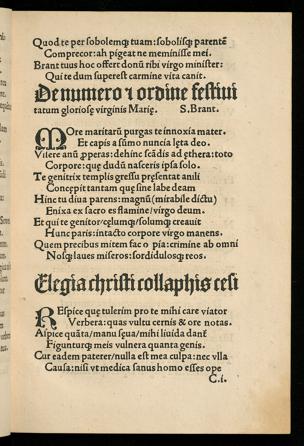 Quod te per sobolemqȝ tuam: sobolisqȝ parentē
Comprecor: ah pigeat ne meminisse mei.
Brant tuus hoc offert donū tibi virgo minister:
Qui te dum superest carmine vita canit.
De numero ⁊ ordine festiui
tatum gloriosę virginis Marię. S. Brant.
More maritarū purgas te innoxia mater.
Et capis a sūmo nuncia lęta deo.
Visere anū ꝓperas: dehinc scādis ad ęthera: toto
Corpore: quę dudū nasceris ipsa solo.
Te genitrix templis gressū pręsentat anili
Concępit tantam quę sine labe deam
Hinc tu diua parens: magnū (mirabile dictu)
Enixa ex sacro es flamine/virgo deum.
Et qui te genitor/cęlumqȝ/solumqȝ creauit
Hunc paris: intacto corpore virgo manens.
Quem precibus mitem fac o pia: crimine ab omni
Nosqȝ laues miseros: sordidulosqȝ reos.
Elegia christi collaphis cesi
REspice quę tulerim pro te mihi care viator
Verbera: quas vultu cernis & ore notas.
Aspice quāta/manu sęua/mihi liuida dant̄
Figunturqȝ meis vulnera quanta genis.
Cur eadem paterer/nulla est mea culpa: nec vlla
Causa: nisi vt medica sanus homo esses ope
C.i.